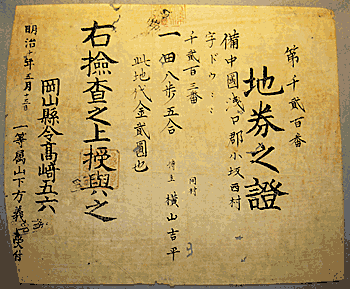 第千貳百番
地券之證
備中國浅口郡小坂西村
字ドウ
千貳百三番
一 田八歩五合
同村
持主 横山吉平
此地代金貳圓也
右撿查之上授與之
明治十年三月十三日
岡山縣令髙﨑五六
一等属山下方義